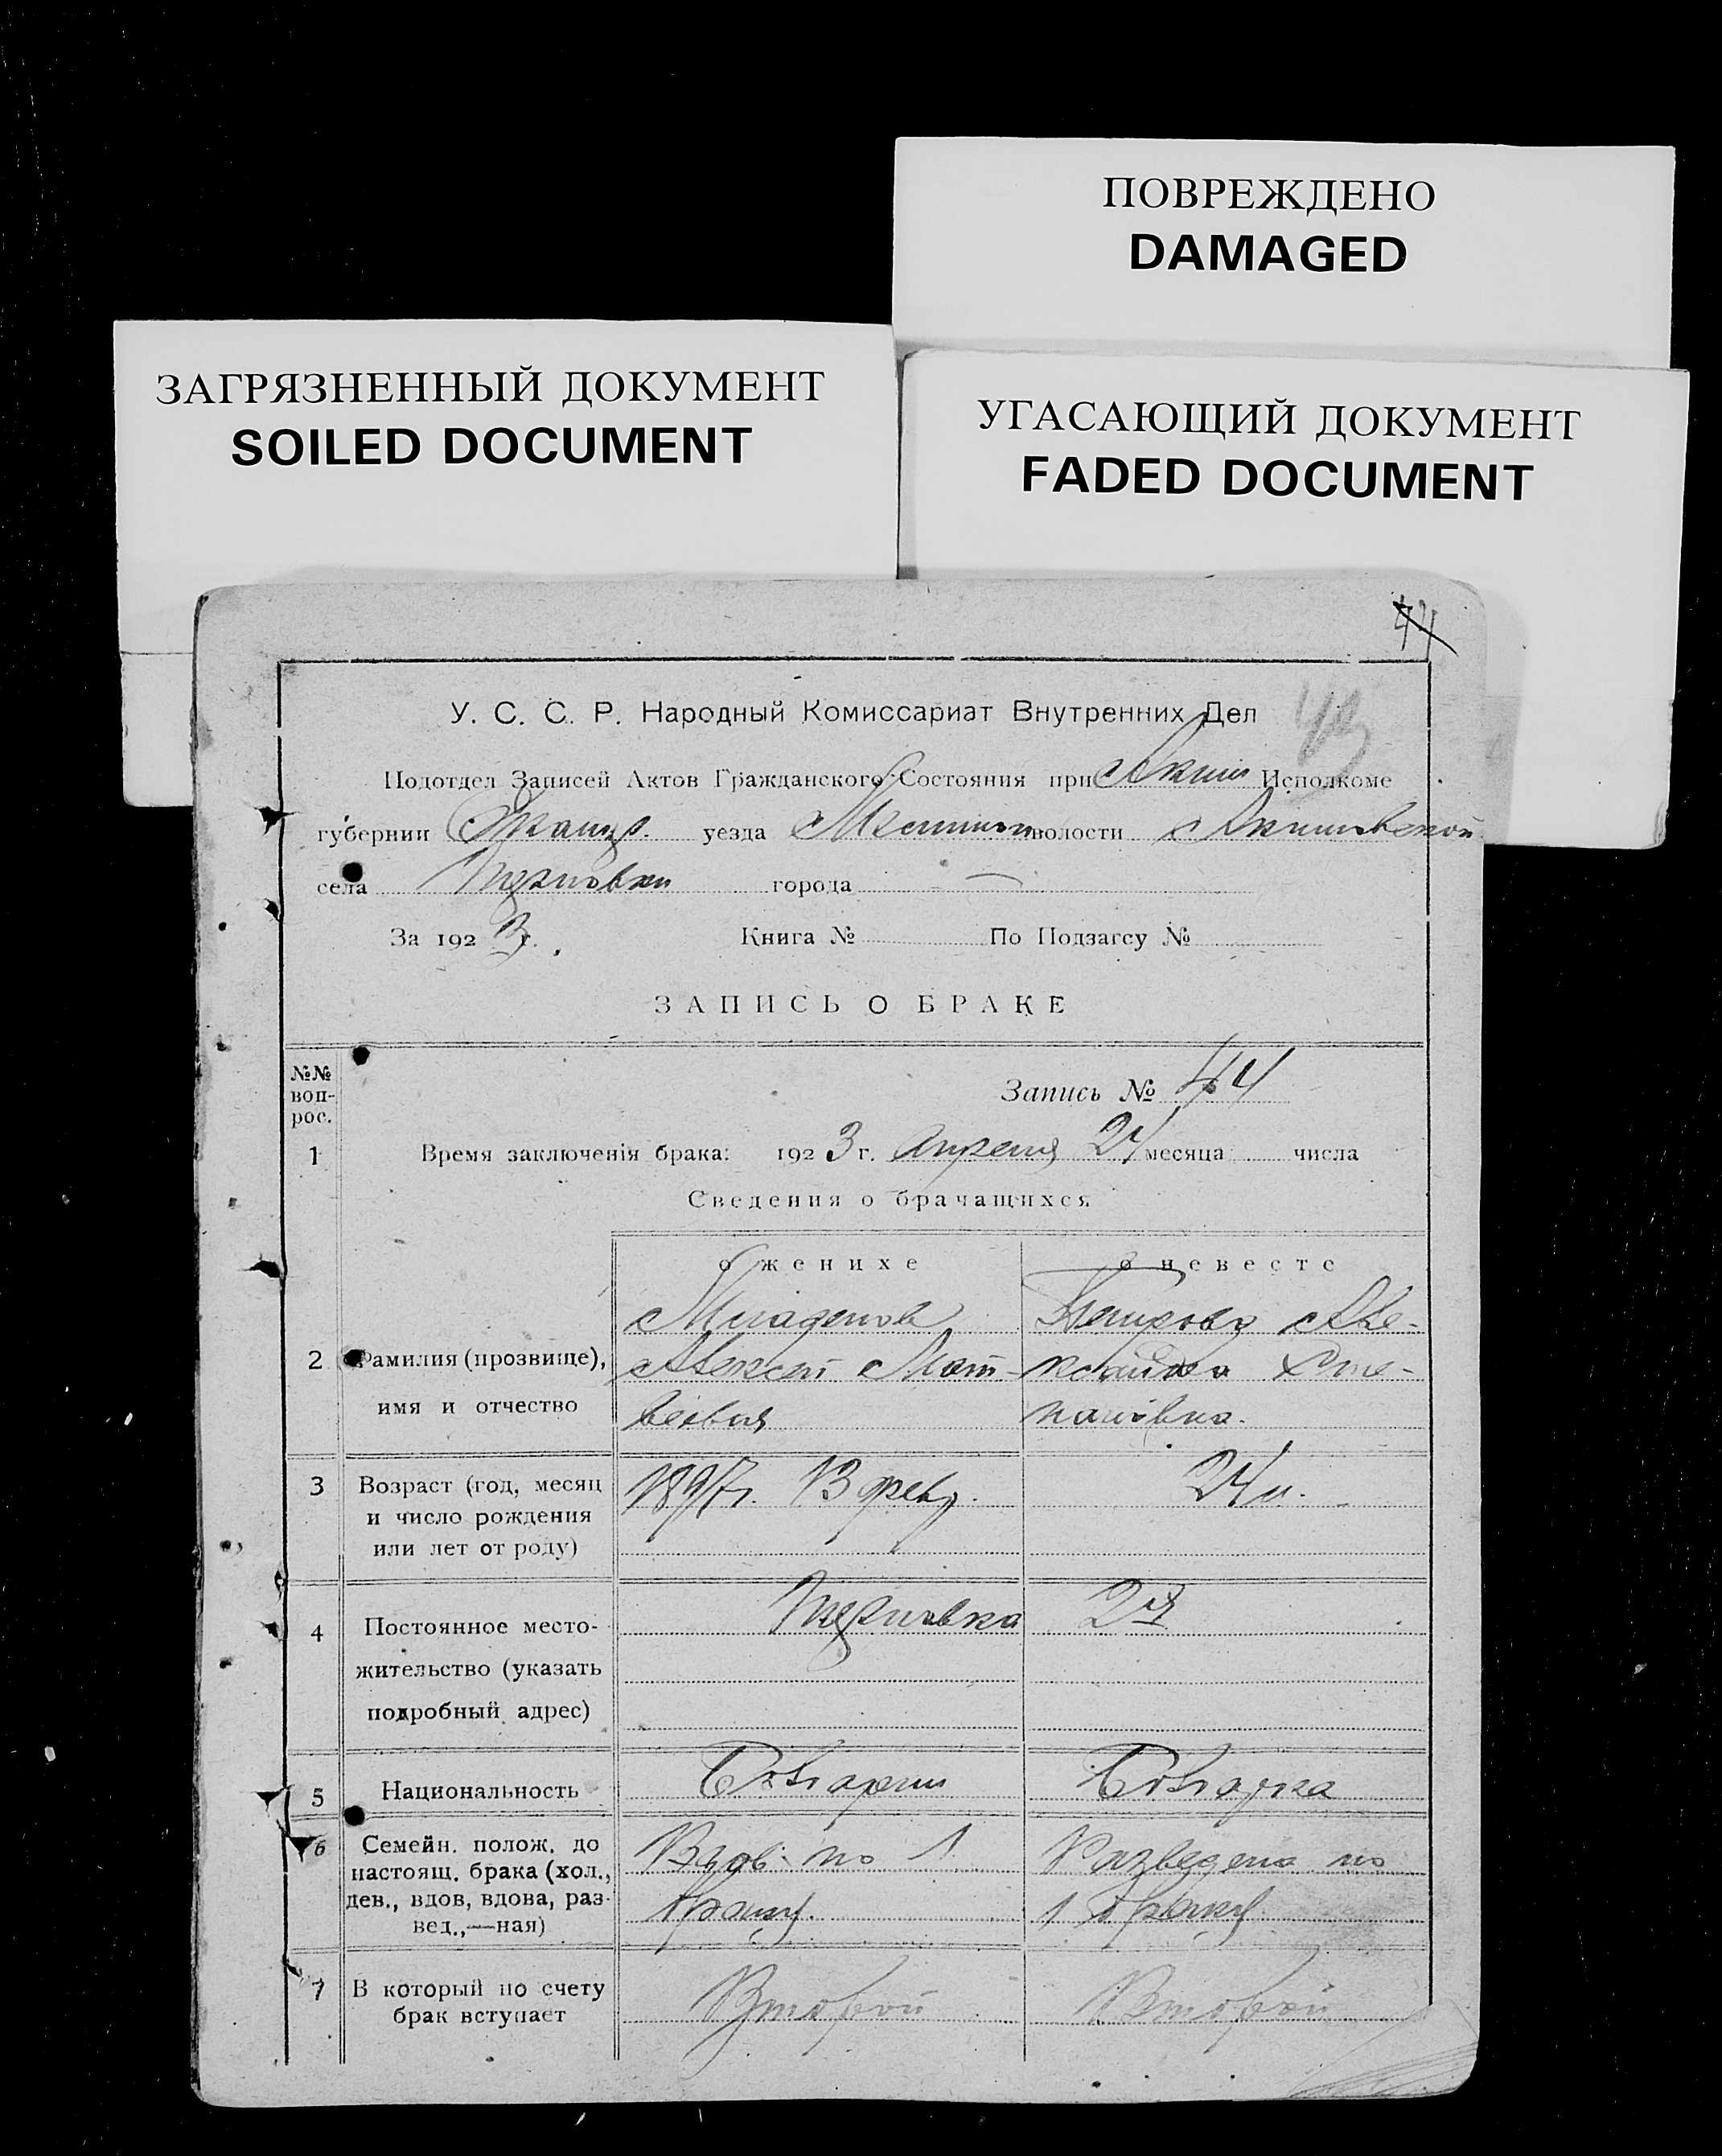 ПОВРЕЖДЕНО
DAMAGED
ЗАГРЯЗНЕННЫЙ ДОКУМЕНТ
SOILED DOCUMENT
УГАСАЮЩИЙ ДОКУМЕНТ
FADED DOCUMENT
44
43
У. С. С. Р. Народный Комиссариат Внутренних Дел
Подотдел Записей Актов Гражданского Состояния при Аким Исполкоме
губернии уезда волости Акимовской
села города —
За 1923 г. Книга № По Подзагсу №
ЗАПИСЬ О БРАКЕ
№№ воп-рос.
Запись № 44
1 Время заключенія брака: 1923 г. апреля 24 месяца числа
Сведения о брачащихся
о женихе о невесте
Младенов Петрова Але-
2 Фамилия (прозвище), Алексей Мат- ксандра Сте-
имя и отчество веевич пановна.
3 Возраст (год, месяц 1897 г. 13 февр. 24 л.
и число рождения
или лет от роду)
4 Постоянное место-
жительство (указать
подробный адрес)
5 Национальность Болгарин Болгарка
6 Семейн. полож. до Вдов по 1 Разведена по
настоящ. брака (хол., браку. 1 браку
дев., вдов, вдова, раз-
вед.,—ная)
7 В который по счету Второй Второй
брак вступает